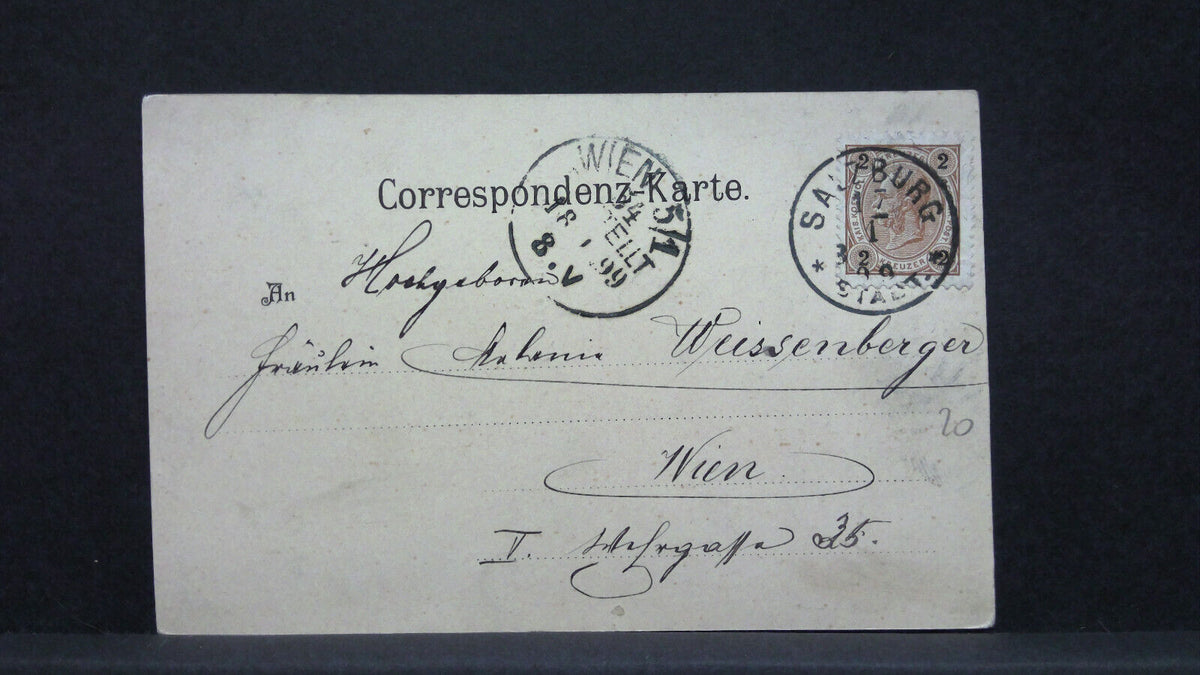 Correspondenz-Karte.
WIEN 5/1
54
BESTELLT
18 8.V 1 99
SALZBURG
7
1
3 99
* STADT. *
2 2
KREUZER
2 2
An Hochgeboren
Fräulein Melanie Weissenberger
20
Wien
V. Wehrgasse 35.